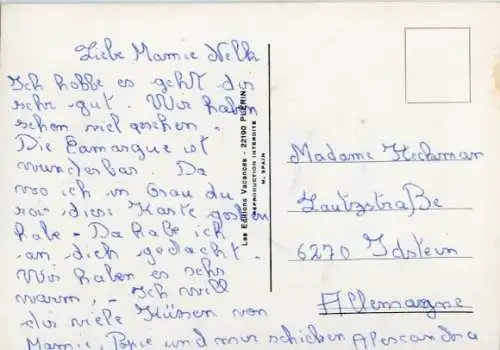 Liebe Mamie Nella
Ich hobbe es geht dir
sehr gut. Wir haben
schon viel gesehen.
Die Camargue ist
wunderbar. Da
wo ich in Grau du
roi diese Karte
habe - Da habe ich
an dich gedacht.
Wir haben es sehr
warm, - Ich will
dir viele Küssen von
Mamie, Papie und mir schicken Alescandra
Les Editions Vacances - 22190 PLERIN
REPRODUCTION INTERDITE
SPAIN
Madame Heckman
Lautzstraße
6270 Idstein
Allemagne